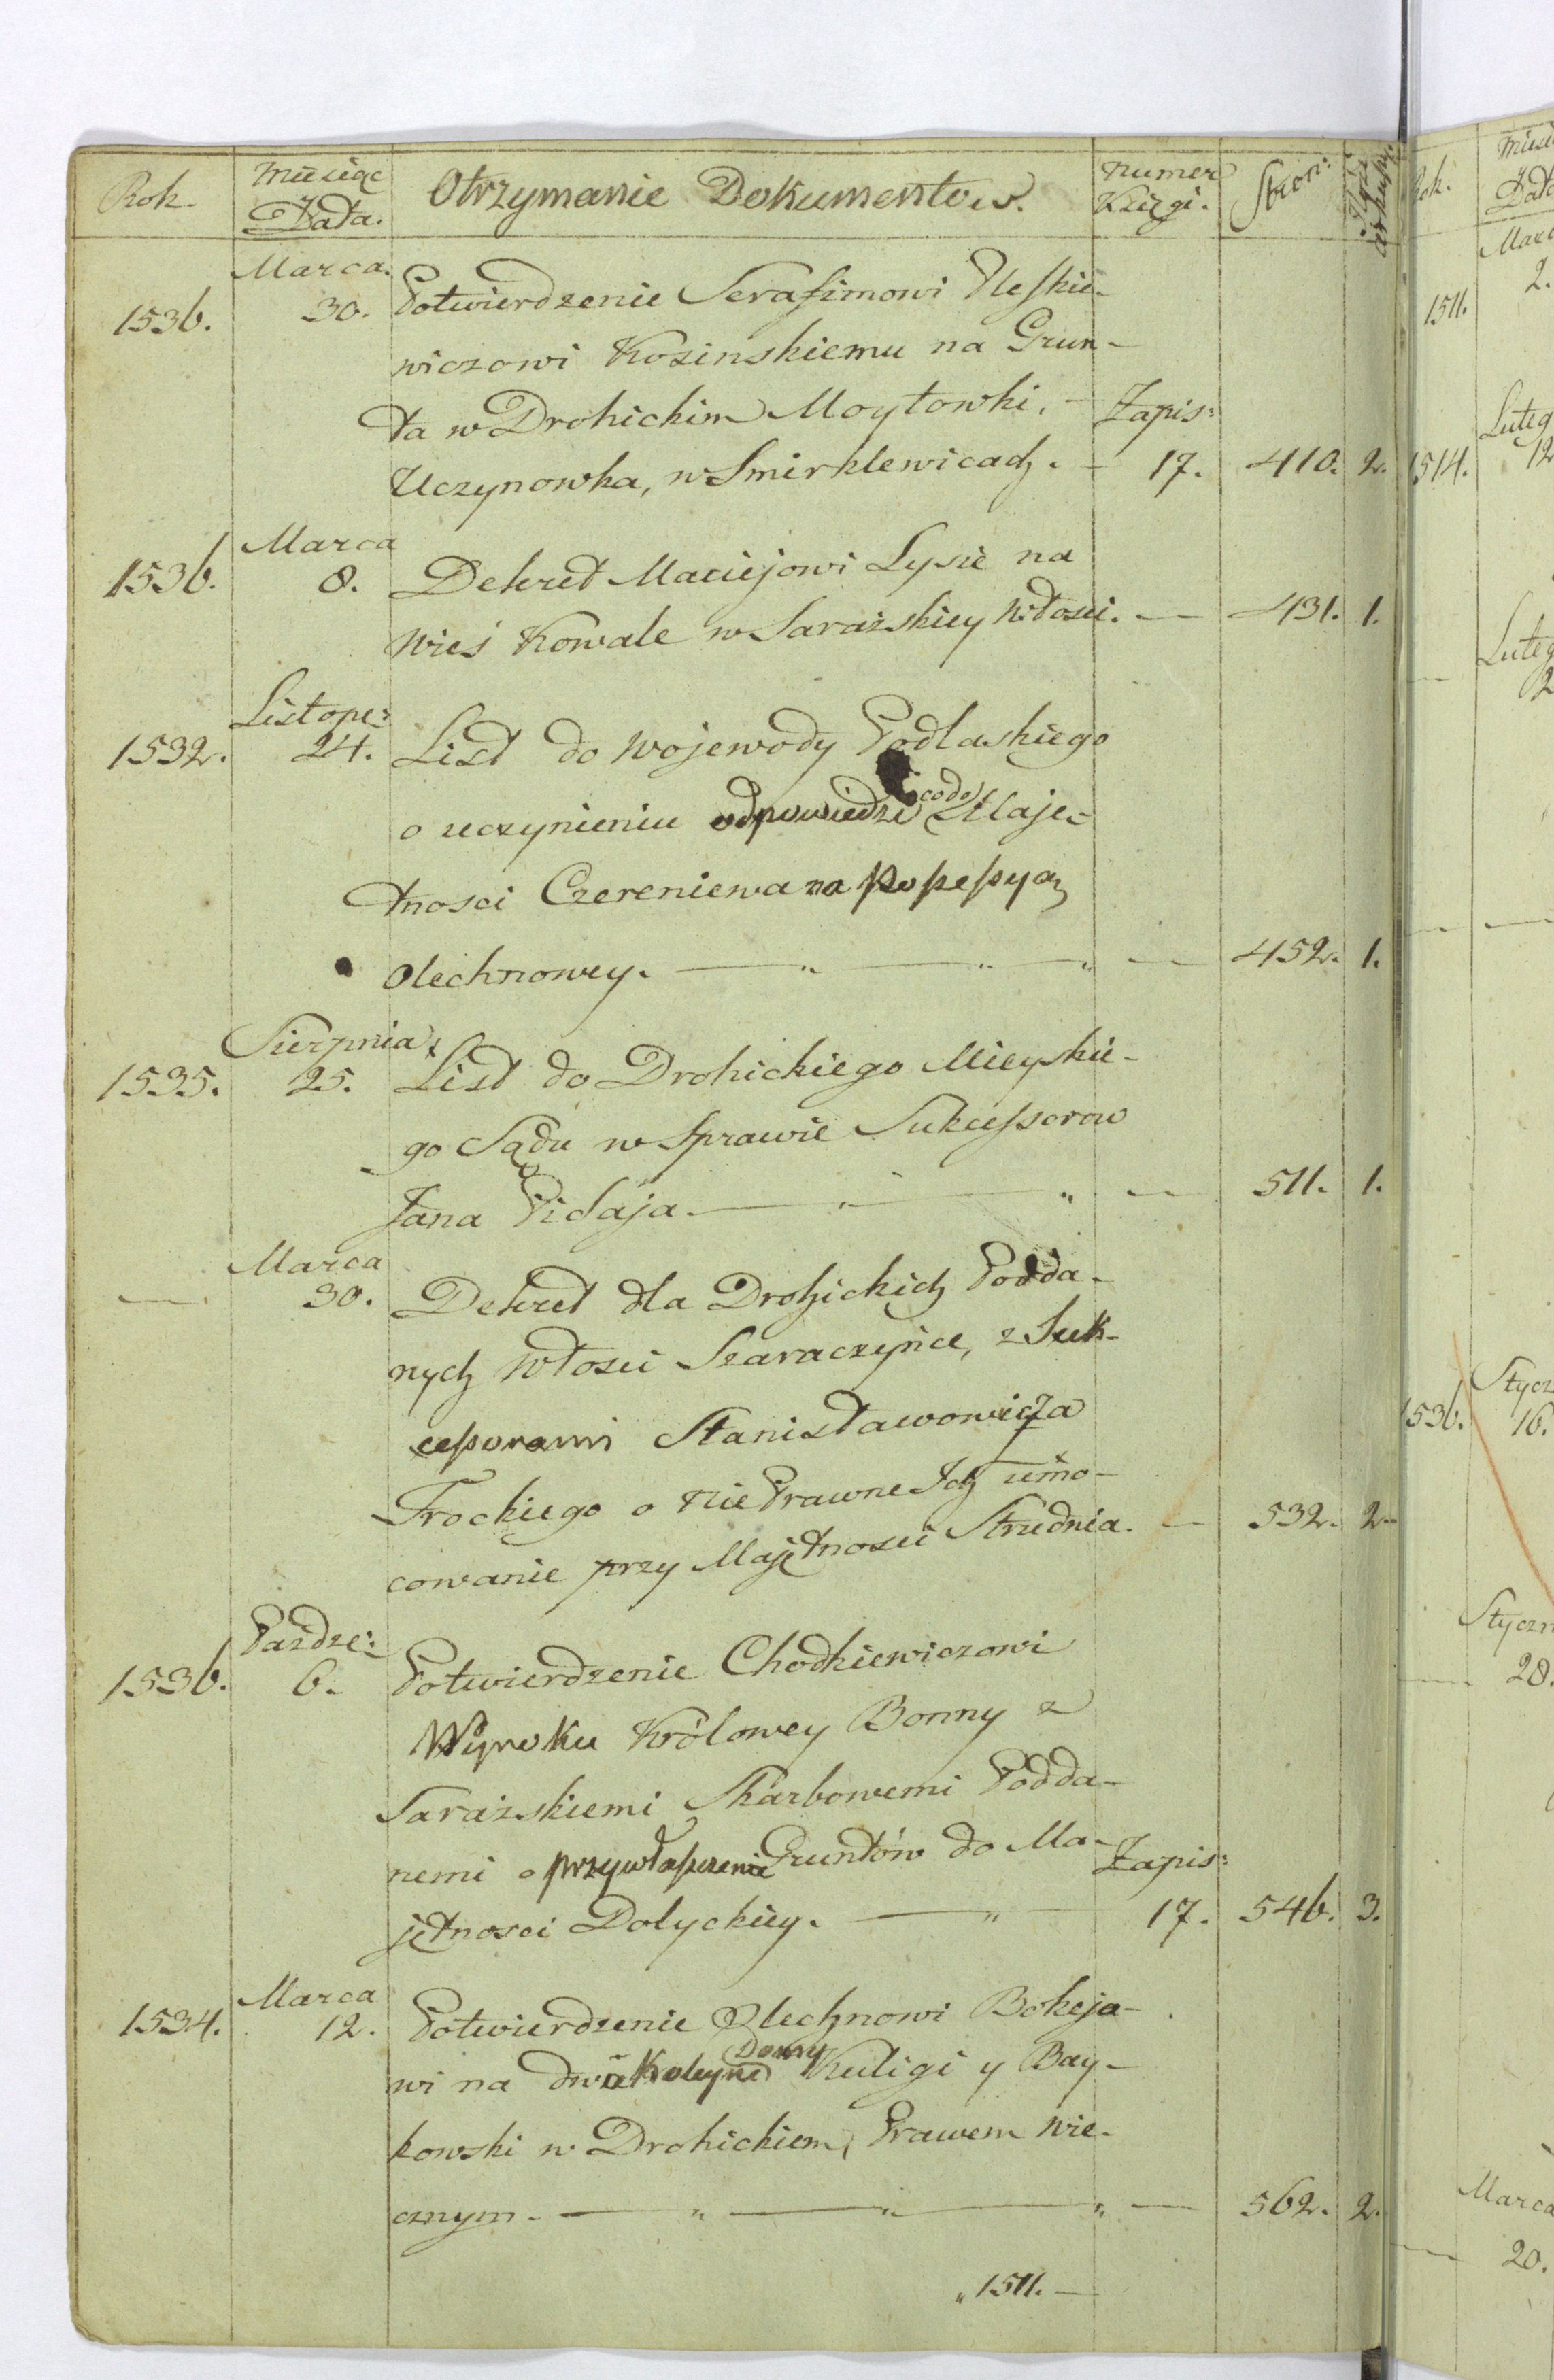 Rok. Miesiąc Data. Otrzymanie Dokumentow. Numer Księgi. Stron:
Marca.
1536. 30. Potwierdzenie Serafimowi Fleszkie-
wiczowi Kosinskiemu na Grun-
ta w Drohickim Moytowki, - Zapis:
Uczynowka, w Smirklewicach. - 17. 410. 2.
Marca
1536. 8. Dekret Maciejowi Lysie na
Wieś Kowale w Saraiskiey Włosci. — 431. 1.
Listopa:
1532. 24. List do Wojewody Podlaskiego
o uczynieniu odpowiedzi co do Maję-
tnosci Czereniewa na
Olechnowey. — " — " — " — 452. 1.
Sierpnia
1535. 25. List do Drohickiego Mieyskie-
go Sądu w Sprawie Sukcessorow
Jana Pidaja. — " — " — 511. 1.
Marca
— 30. Dekret dla Drohickich Podda-
nych Włosci Szaraczyńce, z Suk-
cessorami Stanisławowicza
Trockiego o nie Prawne Ich umo-
cowanie przy Majętnosci Strudnia. — 532. 2.
Pazdze:
1536. 6. Potwierdzenie Chodkiewiczowi
Wyroku Królowey Bonny z
Saraiskiemi Skarbowemi Podda-
nemi o przywłaszczenie Gruntów do Ma- Zapis:
jętnosci Dolyckiey. — " 17. 546. 3.
Marca
1534. 12. Potwierdzenie Olechnowi Bokeja-
wi na dwa Kuligi y Bay-
kowski w Drohickiem, Prawem Wie-
cznym. — " — " — " — 562. 2.
" 1511. —
Rok.
1511. 2.
Luteg
1514. 12
Luteg
2
— —
Stycz
1536. 16.
Styczn
— 28.
Marca
— 20.